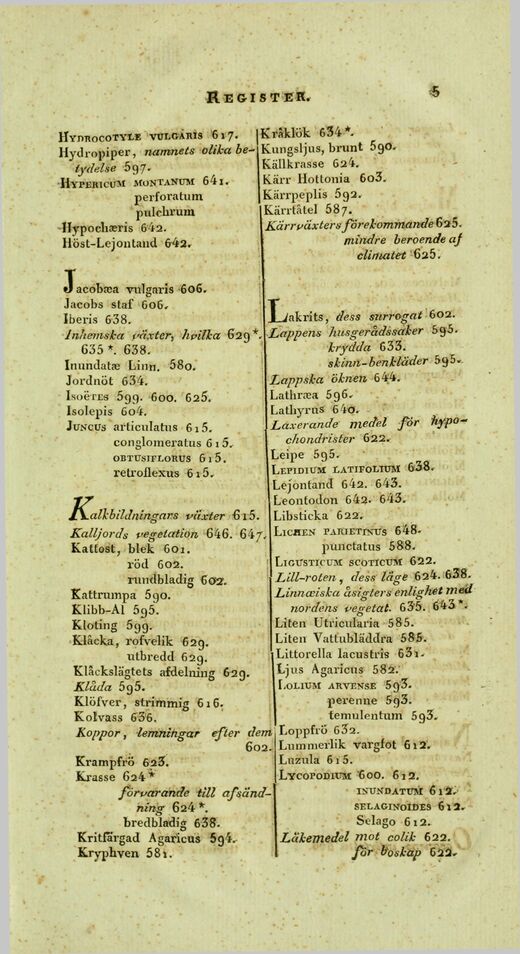 REGISTER.
5
HYDROCOTYLE VULGARIS 617.
Hydropiper, namnets olika be-
tydelse 597.
HYPERICUM MONTANUM 641.
perforatum
pulchrum
Hypochæris 642.
Höst-Lejontand 642.
Jacobæa vulgaris 606.
Jacobs staf 606.
Iberis 638.
Inhemska växter, hvilka 629*.
635*. 638.
Inundatæ Linn. 580.
Jordnöt 634.
ISOËTES 599. 600. 625.
Isolepis 604.
JUNCUS articulatus 615.
conglomeratus 615.
OBTUSIFLORUS 615.
retroflexus 615.
Kalkbildningars växter 615.
Kalljords vegetation 646. 647.
Kattost, blek 601.
röd 602.
rundbladig 602.
Kattrumpa 590.
Klibb-Al 595.
Kloting 599.
Klåcka, rofvelik 629.
utbredd 629.
Klåckslägtets afdelning 629.
Klåda 595.
Klöfver, strimmig 616.
Kolvass 636.
Koppor, lemningar efter dem
602.
Krampfrö 623.
Krasse 624*
förvarande till afsänd-
ning 624*.
bredbladig 638.
Kritfärgad Agaricus 594.
Kryphven 581.
Kråklök 634*.
Kungsljus, brunt 590.
Källkrasse 624.
Kärr Hottonia 603.
Kärrpeplis 592.
Kärrtåtel 587.
Kärrväxters förekommande 625.
mindre beroende af
climatet 625.
Lakrits, dess surrogat 602.
Lappens husgerådssaker 595.
krydda 633.
skinn-benkläder 595.
Lappska öknen 644.
Lathræa 596.
Lathyrus 640.
Laxerande medel för hypo-
chondrister 622.
Leipe 595.
LEPIDIUM LATIFOLIUM 638.
Lejontand 642. 643.
Leontodon 642. 643.
Libsticka 622.
LICHEN PARIETINUS 648.
punctatus 588.
LIGUSTICUM SCOTICUM 622.
Lill-roten, dess läge 624. 638.
Linnæiska åsigters enlighet med
nordens vegetat. 635. 643*.
Liten Utricularia 585.
Liten Vattubläddra 585.
Littorella lacustris 631.
Ljus Agaricus 582.
LOLIUM ARVENSE 593.
perenne 593.
temulentum 593.
Loppfrö 632.
Lummerlik vargfot 612.
Luzula 615.
LYCOPODIUM 600. 612.
INUNDATUM 612.
SELAGINOIDES 612.
Selago 612.
Läkemedel mot colik 622.
för boskap 622.